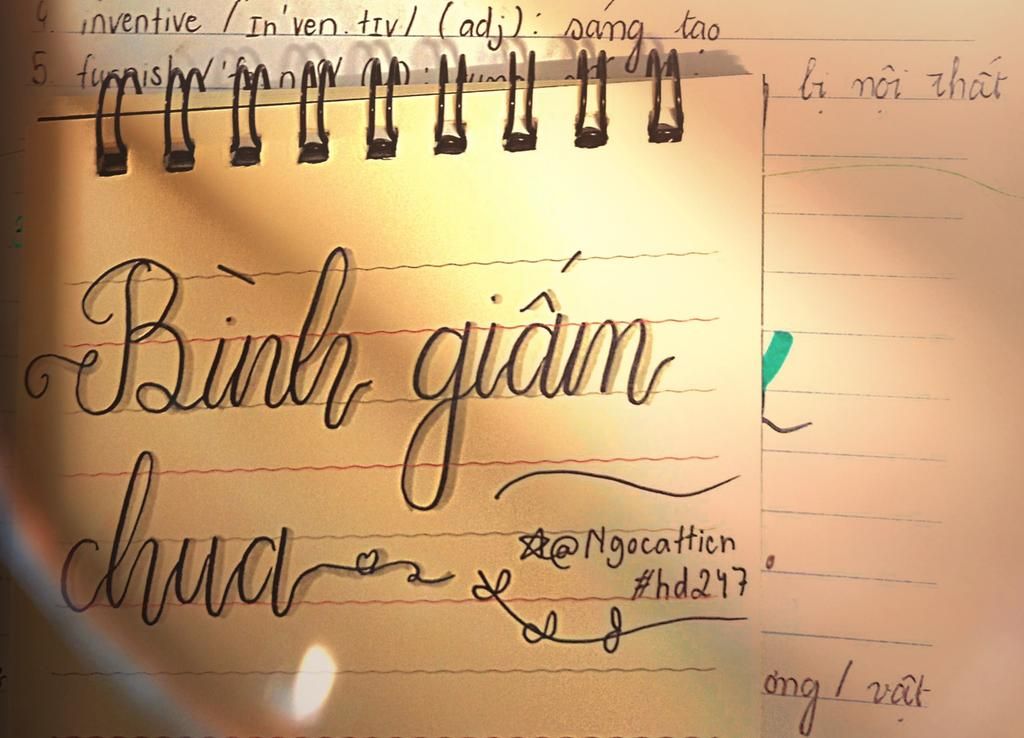 4. inventive / In'ven.tIv/ (adj): sáng tạo
5. furnish
bị nội thất
Bình giấm
chua
☆@Ngocattien
#hd247
ơng / vật